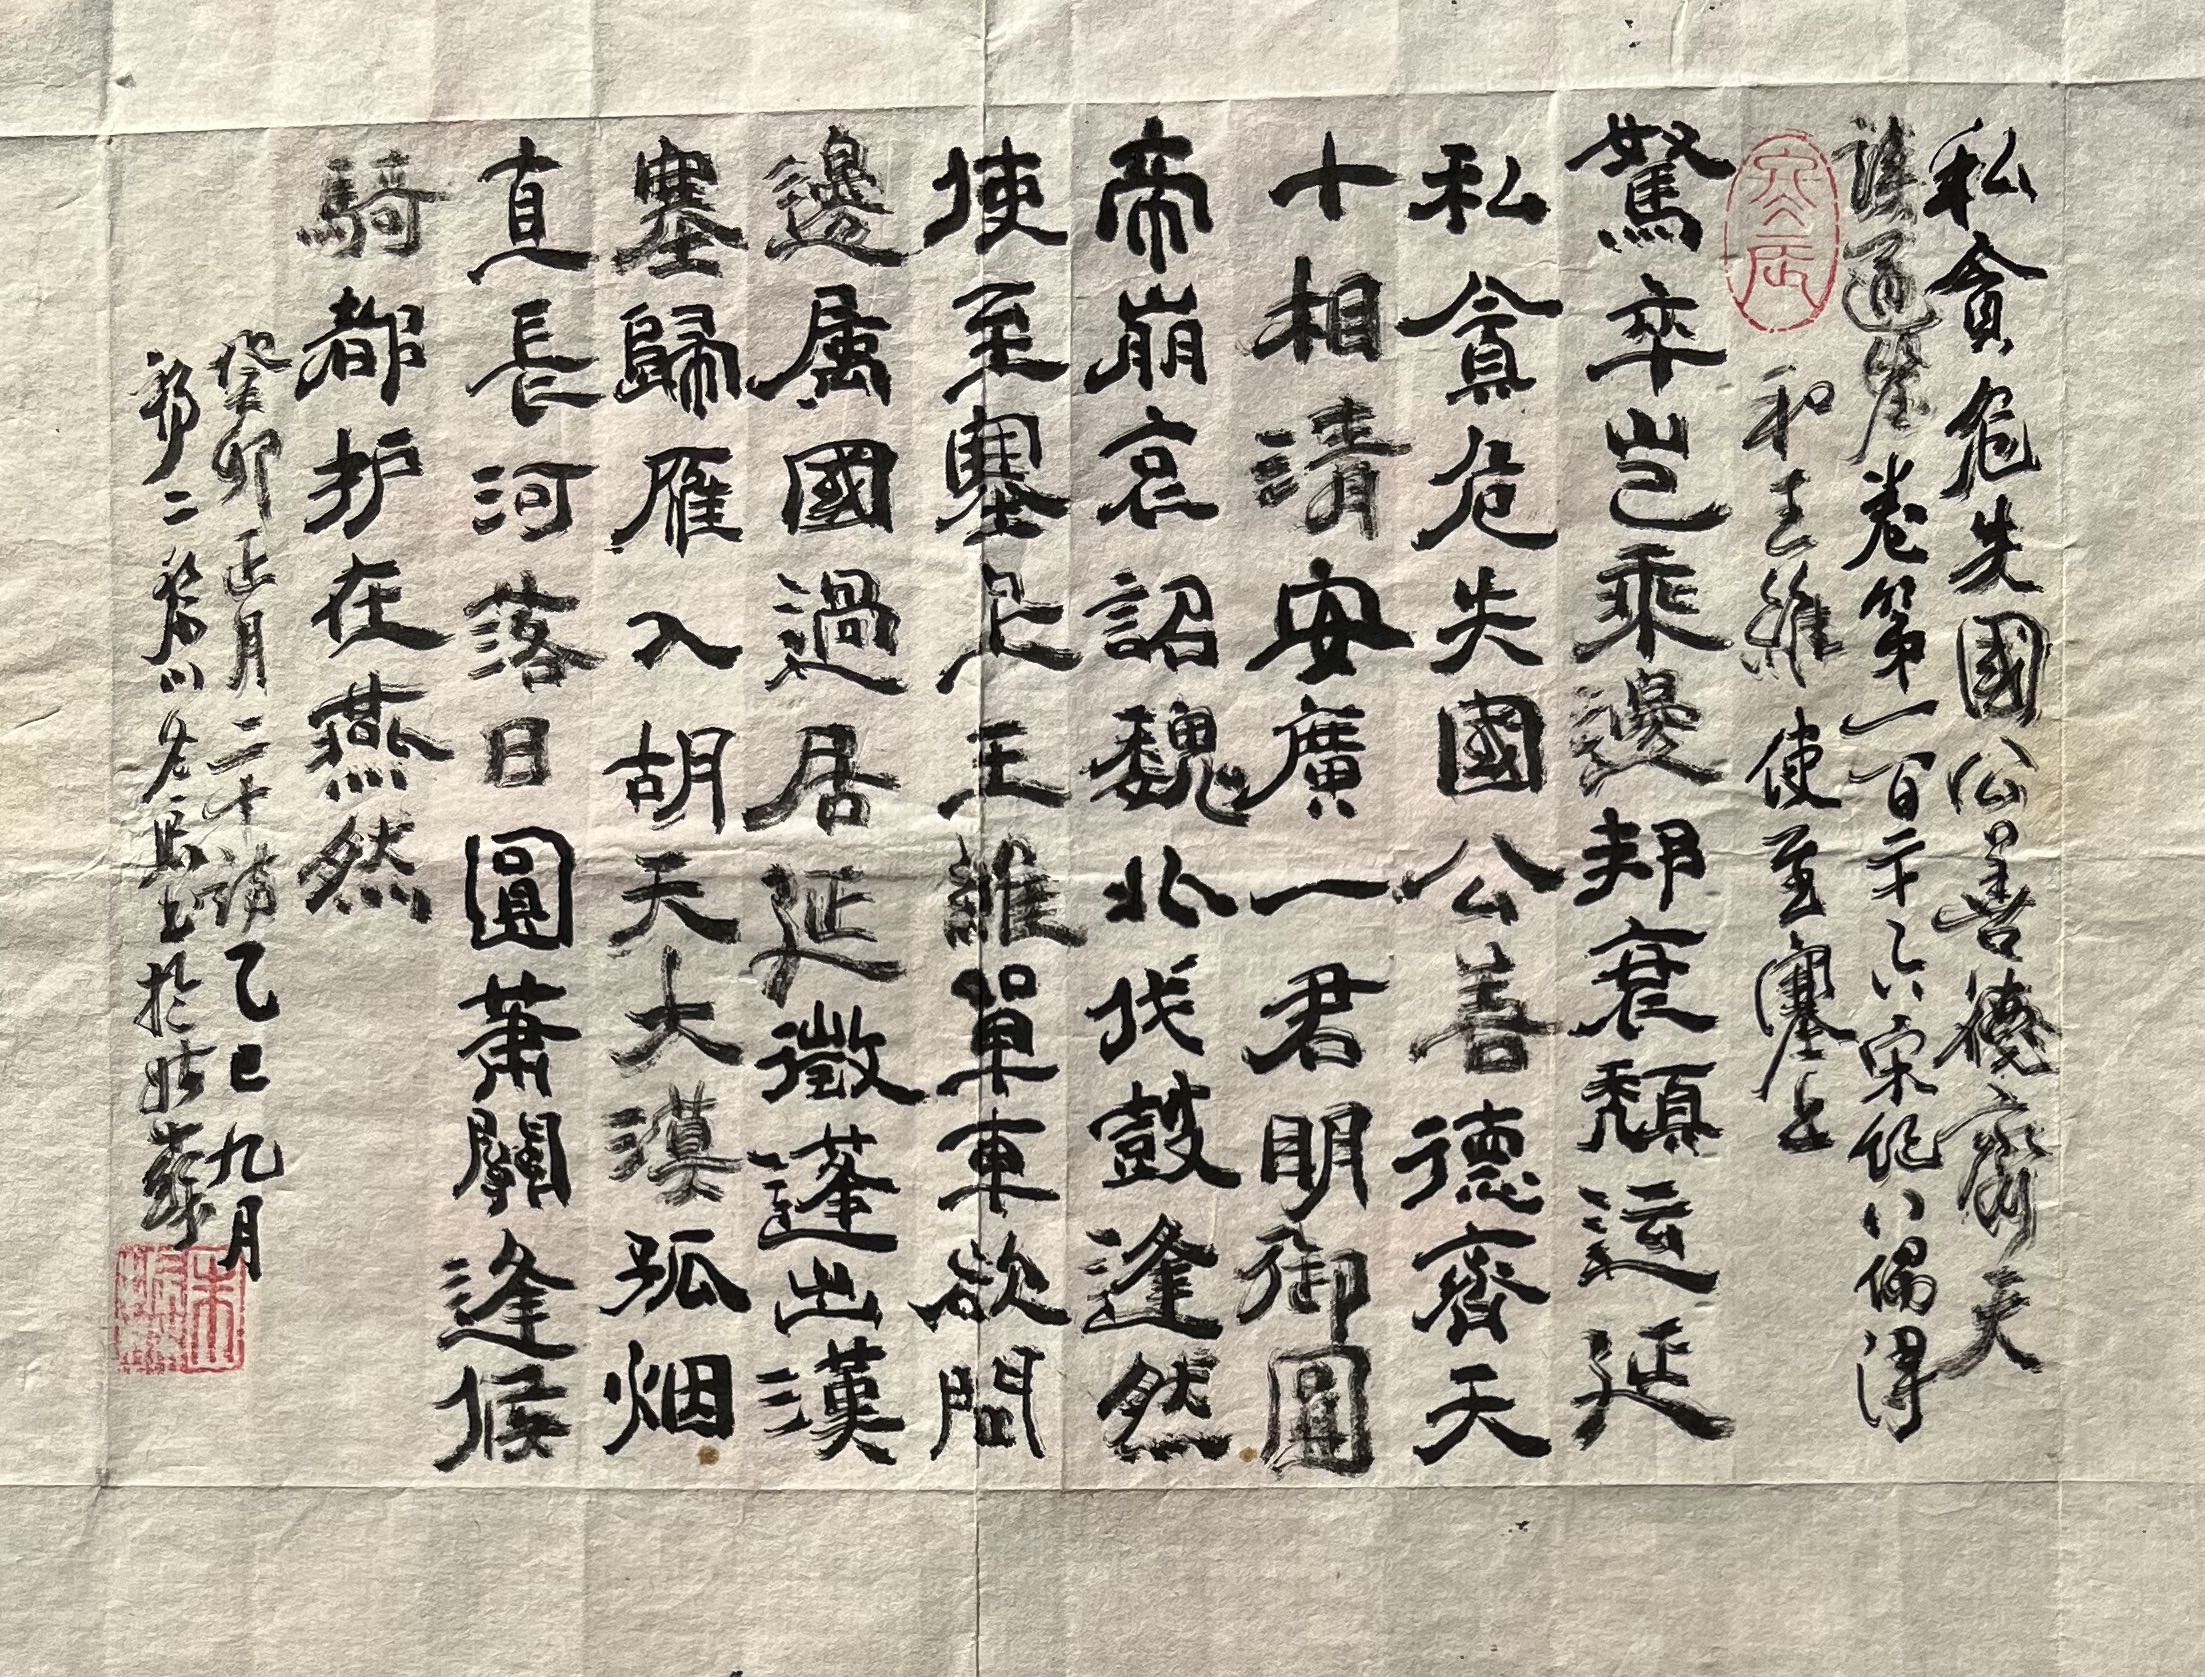 私貪危失國公善德齊天
讀通鑒卷第一百三十六宋紀八偶得
和王維使至塞上
駑卒豈乘邊邦衰頹运延
私貪危失國公善德齊天
十相清安廣一君明御圓
帝崩哀詔魏北伐鼓逢然
使至塞上王維單車欲問
邊属國過居延徵蓬出漢
塞歸雁入胡天大漠孤烟
直長河落日圓蕭關逢候
騎都护在燕然
癸卯正月二十 乙巳九月
二 書於姑蘇